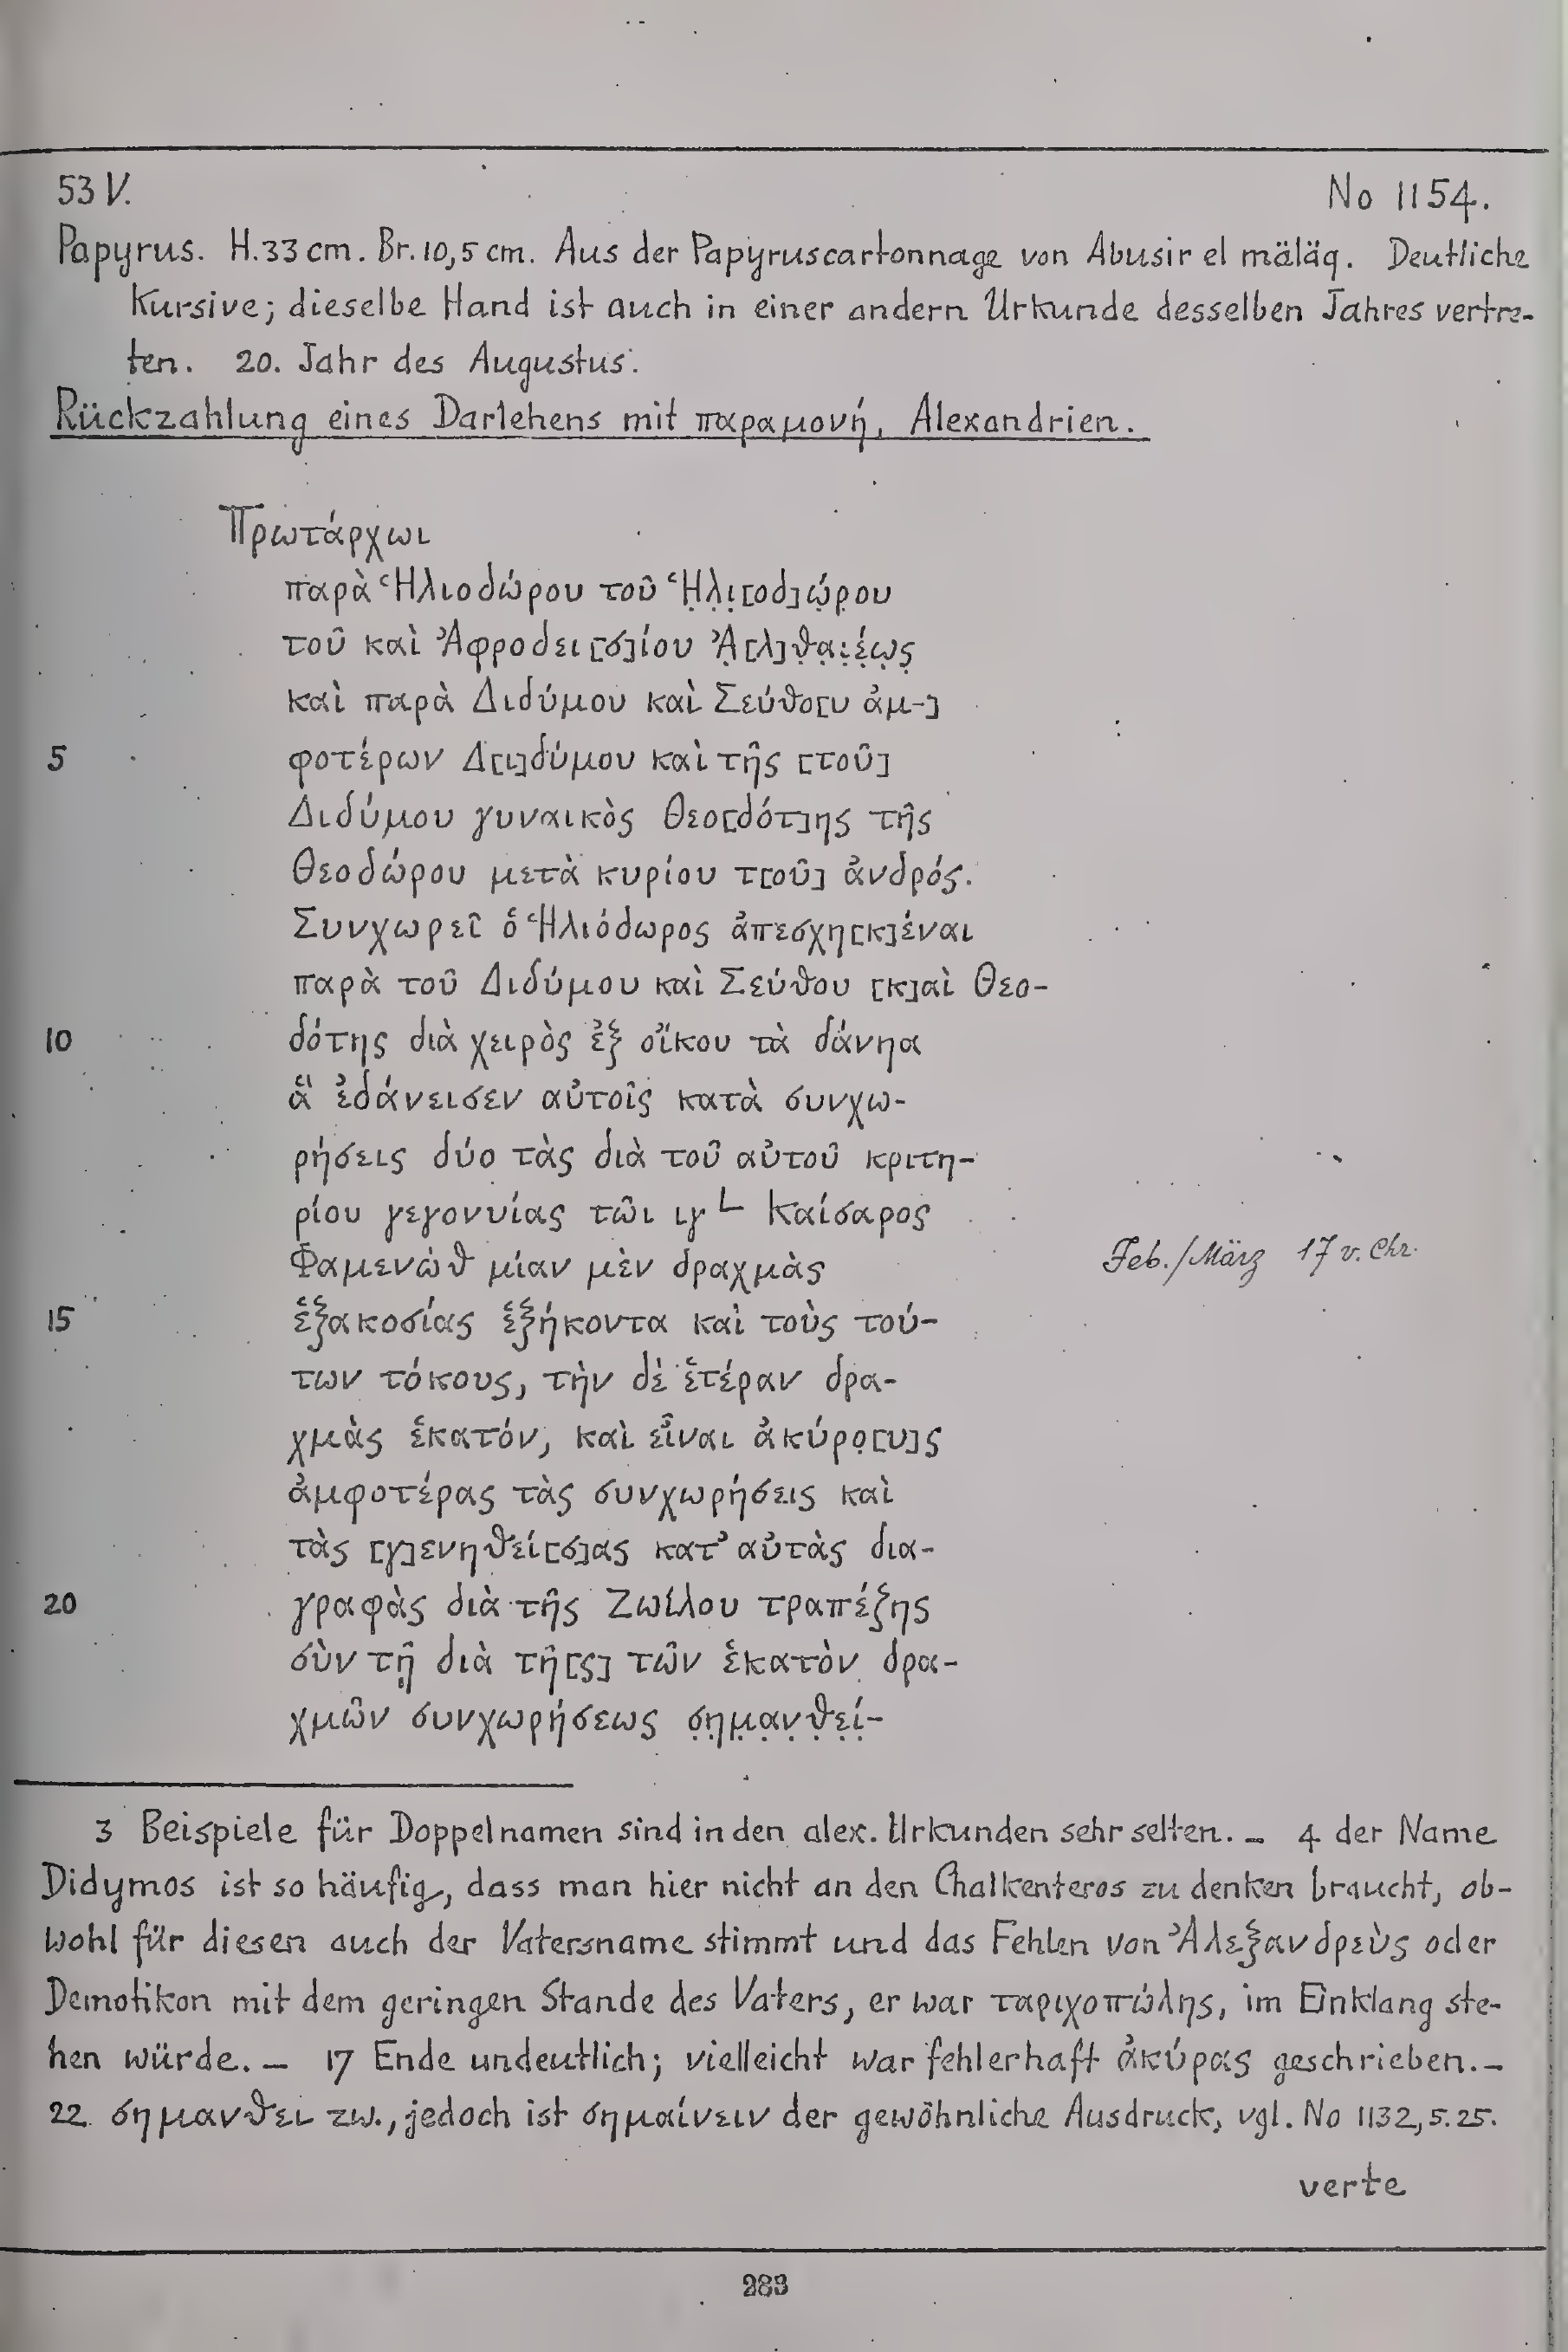 53 V. No 1154.
Papyrus. H. 33 cm. Br. 10,5 cm. Aus der Papyruscartonnage von Abusir el mäläq. Deutliche
Kursive; dieselbe Hand ist auch in einer andern Urkunde desselben Jahres vertre-
ten. 20. Jahr des Augustus.
Rückzahlung eines Darlehens mit παραμονή, Alexandrien.
Πρωτάρχωι
παρὰ Ἡλιοδώρου τοῦ Ἡ̣λ̣ι̣[οδ]ώ̣ρ̣ου
τοῦ καὶ Ἀφροδει[σ]ίου Ἀ̣[λ]θ̣α̣ι̣έ̣ω̣ς̣
καὶ παρὰ Διδύμου καὶ Σεύθο[υ ἀμ-]
5 φοτέρων Δ[ι]δύμου καὶ τῆς [τοῦ]
Διδύμου γυναικὸς Θεο[δότ]ης τῆς
Θεοδώρου μετὰ κυρίου τ[οῦ] ἀνδρός.
Συνχωρεῖ ὁ Ἡλιόδωρος ἀπεσχη[κ]έναι
παρὰ τοῦ Διδύμου καὶ Σεύθου [κ]αὶ Θεο-
10 δότης διὰ χειρὸς ἐξ οἴκου τὰ δάνηα
ἃ ἐδάνεισεν αὐτοῖς κατὰ συνχω-
ρήσεις δύο τὰς διὰ τοῦ αὐτοῦ κριτη-
ρίου γεγονυίας τῶι ιγ L Καίσαρος
Φαμενὼθ μίαν μὲν δραχμὰς Feb./März 17 v. Chr.
15 ἑξακοσίας ἑξήκοντα καὶ τοὺς τού-
των τόκους, τὴν δὲ ἑτέραν δρα-
χμὰς ἑκατόν, καὶ εἶναι ἀκύρο̣[υ]ς
ἀμφοτέρας τὰς συνχωρήσεις καὶ
τὰς [γ]ενηθεί[σ]ας κατ' αὐτὰς δια-
20 γραφὰς διὰ τῆς Ζωίλου τραπέζης
σὺν τῇ διὰ τῆ[ς] τῶν ἑκατὸν δρα-
χμῶν συνχωρήσεως σ̣η̣μ̣α̣ν̣θ̣ε̣ί̣-
3 Beispiele für Doppelnamen sind in den alex. Urkunden sehr selten. – 4 der Name
Didymos ist so häufig, dass man hier nicht an den Chalkenteros zu denken braucht, ob-
wohl für diesen auch der Vatersname stimmt und das Fehlen von Ἀλεξανδρεὺς oder
Demotikon mit dem geringen Stande des Vaters, er war ταριχοπώλης, im Einklang ste-
hen würde. – 17 Ende undeutlich; vielleicht war fehlerhaft ἀκύρας geschrieben. –
22 σημανθει zw., jedoch ist σημαίνειν der gewöhnliche Ausdruck, vgl. No 1132, S. 25.
verte
283